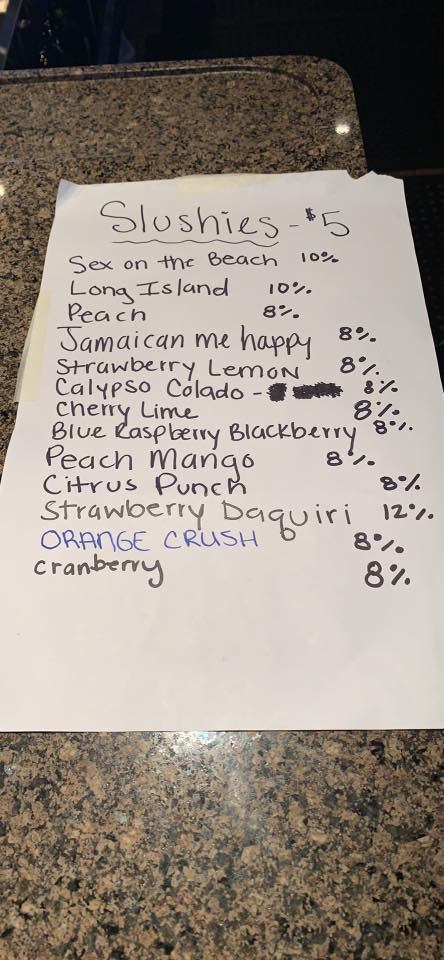 Slushies - $5
Sex on the Beach 10%
Long Island 10%
Peach 8%
Jamaican me happy 8%
Strawberry Lemon 8%
Calypso Colado - 8%
Cherry Lime 8%
Blue Raspberry Blackberry 8%
Peach Mango 8%
Citrus Punch 8%
Strawberry Daquiri 12%
ORANGE CRUSH 8%
cranberry 8%